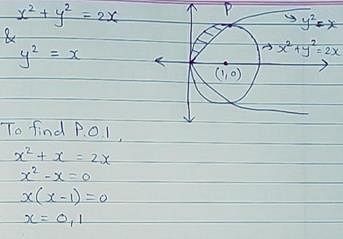 x² + y² = 2x
&
y² = x
P
y² = x
x² + y² = 2x
(1,0)
To find P.O.I,
x² + x = 2x
x² - x = 0
x(x-1) = 0
x = 0, 1